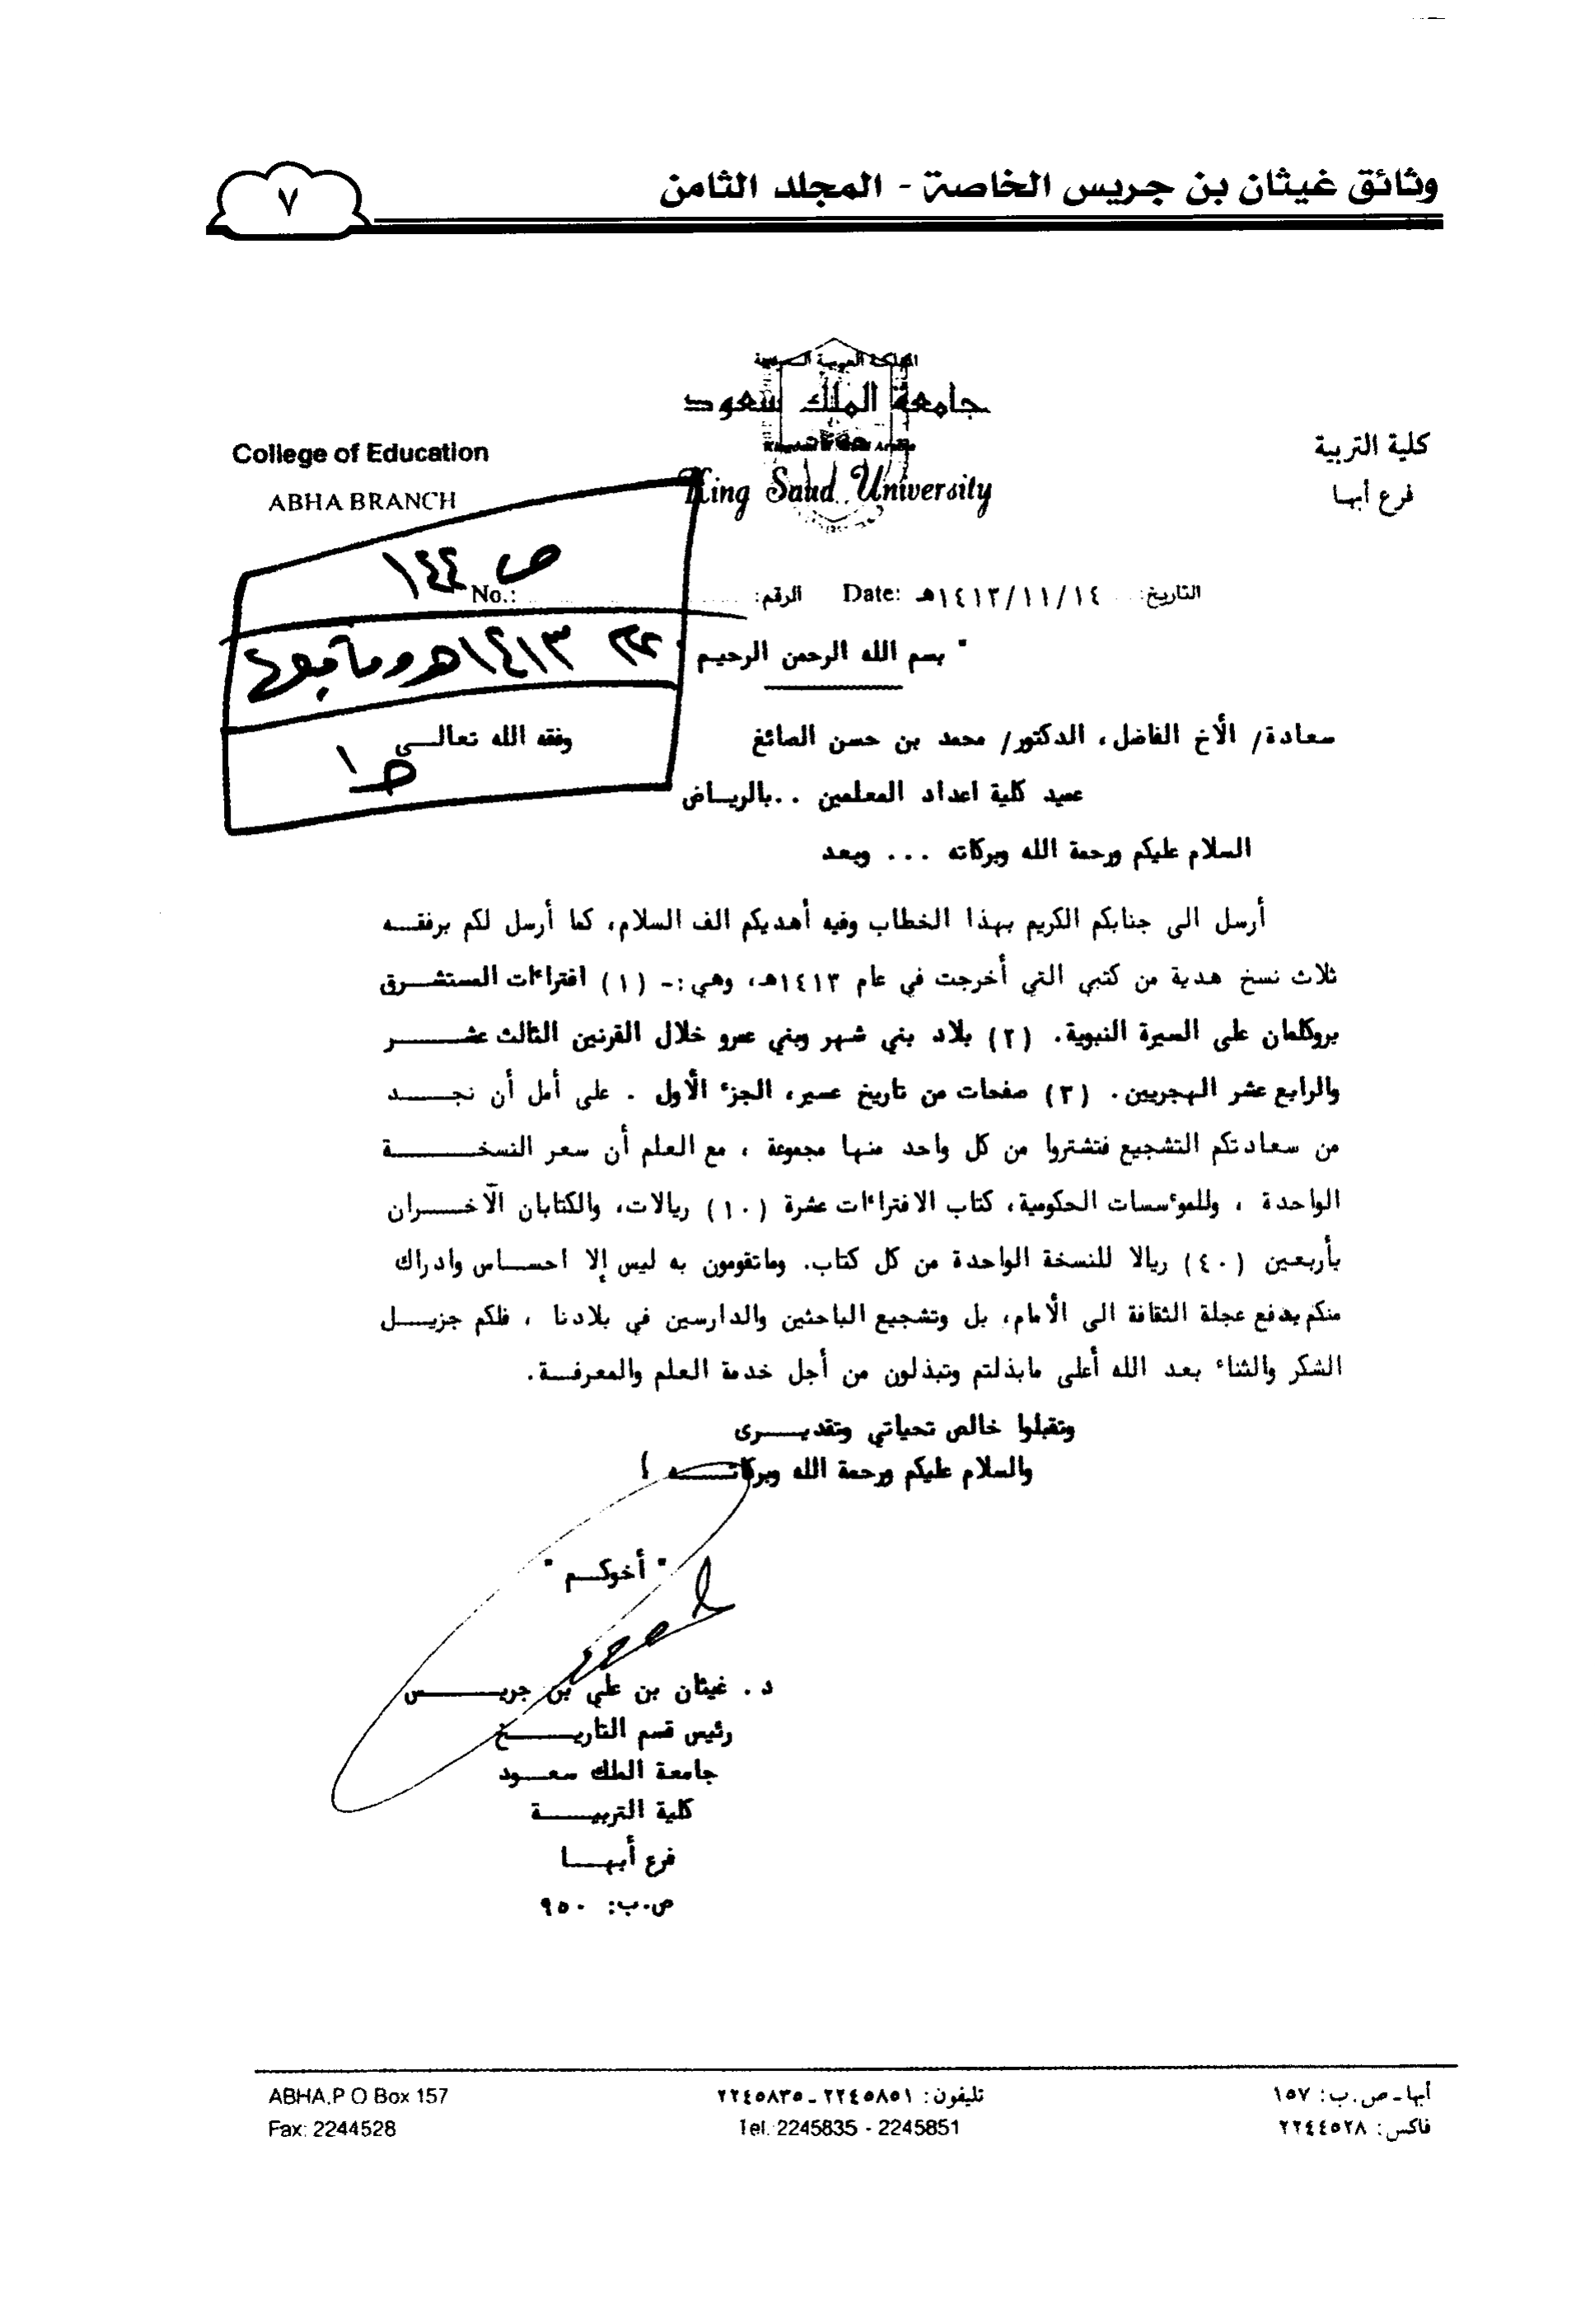 وثائق غيثان بن جريس الخاصة - المجلد الثامن
٧
المملكة العربية السعودية
جامعة الملك سعود
King Saud University
College of Education
ABHA BRANCH
كلية التربية
فرع أبها
التاريخ: ١٤١٣/١١/١٤هـ Date: الرقم: No.:
ص ١٤٤
١٤١٣هـ وما قبلها
ص ١
" بسم الله الرحمن الرحيم "
سعادة/ الأخ الفاضل، الدكتور/ محمد بن حسن الصائغ وفقه الله تعالــى
عميد كلية اعداد المعلمين ..بالريـاض
السلام عليكم ورحمة الله وبركاته ... وبعد
أرسل الى جنابكم الكريم بهذا الخطاب وفيه أهديكم الف السلام، كما أرسل لكم برفقــه
ثلاث نسخ هدية من كتبي التي أخرجت في عام ١٤١٣هـ، وهي:- (١) افتراءات المستشــرق
بروكلمان على السيرة النبوية. (٢) بلاد بني شهر وبني عمرو خلال القرنين الثالث عشـــــر
والرابع عشر الهجريين. (٣) صفحات من تاريخ عسير، الجزء الأول . على أمل أن نجـــد
من سعادتكم التشجيع فتشتروا من كل واحد منها مجموعة ، مع العلم أن سعر النسخـــــة
الواحدة ، وللمؤسسات الحكومية، كتاب الافتراءات عشرة (١٠) ريالات، والكتابان الآخــــران
بأربعين (٤٠) ريالا للنسخة الواحدة من كل كتاب. وماتقومون به ليس إلا احســاس وادراك
منكم بدفع عجلة الثقافة الى الأمام، بل وتشجيع الباحثين والدارسين في بلادنا ، فلكم جزيـــل
الشكر والثناء بعد الله أعلى مابذلتم وتبذلون من أجل خدمة العلم والمعرفــة.
وتقبلوا خالص تحياتي وتقديــــرى
والسلام عليكم ورحمة الله وبركاتــــه
" أخوكــم "
د . غيثان بن علي بن جريـــــس
رئيس قسم التاريـــــخ
جامعة الملك سعــود
كلية التربيـــــة
فرع أبهـــا
ص.ب: ٩٥٠
أبها ـ ص.ب: ١٥٧
تليفون: ٢٢٤٥٨٥١ ـ ٢٢٤٥٨٣٥
ABHA.P O Box 157
فاكس: ٢٢٤٤٥٢٨
Tel. 2245835 - 2245851
Fax: 2244528